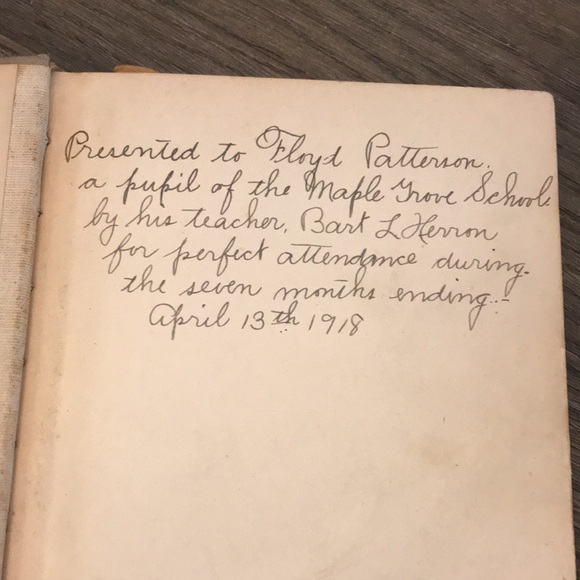 Presented to Floyd Patterson.
a pupil of the Maple Grove School
by his teacher, Bart L Herron
for perfect attendance during
the seven months ending:-
April 13th 1918